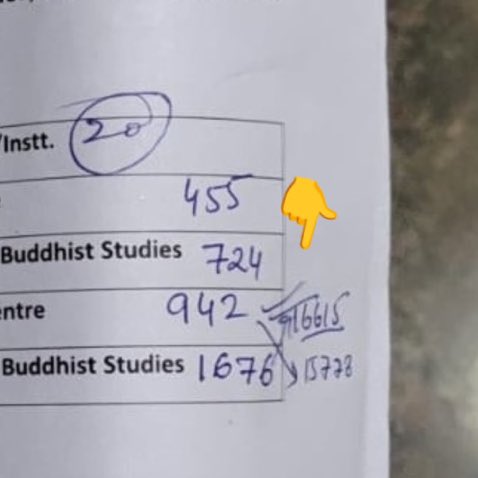 /Instt. 20
455
Buddhist Studies 724
entre 942 16615
Buddhist Studies 1676 15778